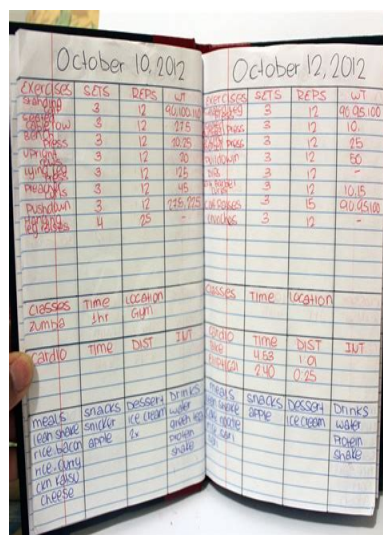 October 10, 2012
Exercises SETS REPS WT
standing
3 12 90,100,110
seated
cable row 3 12 27.5
Bench
press 3 12 20,25
upright
rows 3 12 20
lying leg
press 3 12 125
Preacher
curls 3 12 45
pushdown 3 12
hanging
leg raises 4 25 -
Classes Time Location
zumba 1hr Gym
cardio Time DIST INT
meals snacks Dessert Drinks
lean shake snicker ice cream water
rice bacon apple 2x green tea
rice curry protein
shake
cheese
October 12, 2012
Exercises SETS REPS WT
3 12 90,95,100
press 3 12 10
press 3 12 25
pulldown 3 12 50
3 12 -
3 12 10,15
calf raises 3 15 90,95,100
crunches 3 12 -
Classes Time Location
Cardio Time DIST INT
4:53 1.01
2:40 0.25
meals snacks Dessert Drinks
lean shake apple ice cream water
noodle Protein
shake